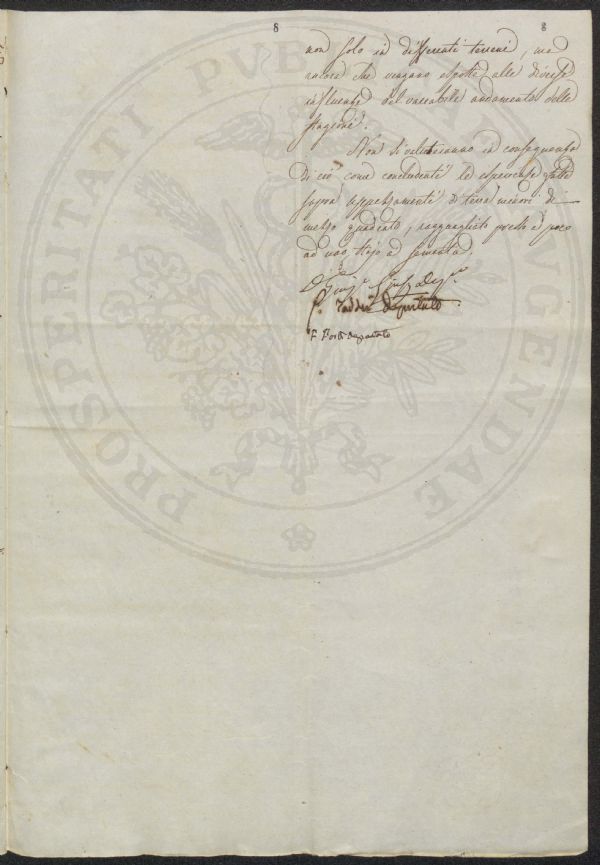 8 8
non solo in differenti terreni, ma
ancora che vengano esposte alle diverse
influenze del variabile andamento delle
stagioni.
Non si valuteranno in conseguenza
di ciò come concludenti le esperienze fatte
sopra appezzamenti di terra minori di
mezzo quadrato, ragguagliato presso a poco
ad uno stajo a sementa.
Deputato
PROSPERITATI PUBLICAE AUGENDAE